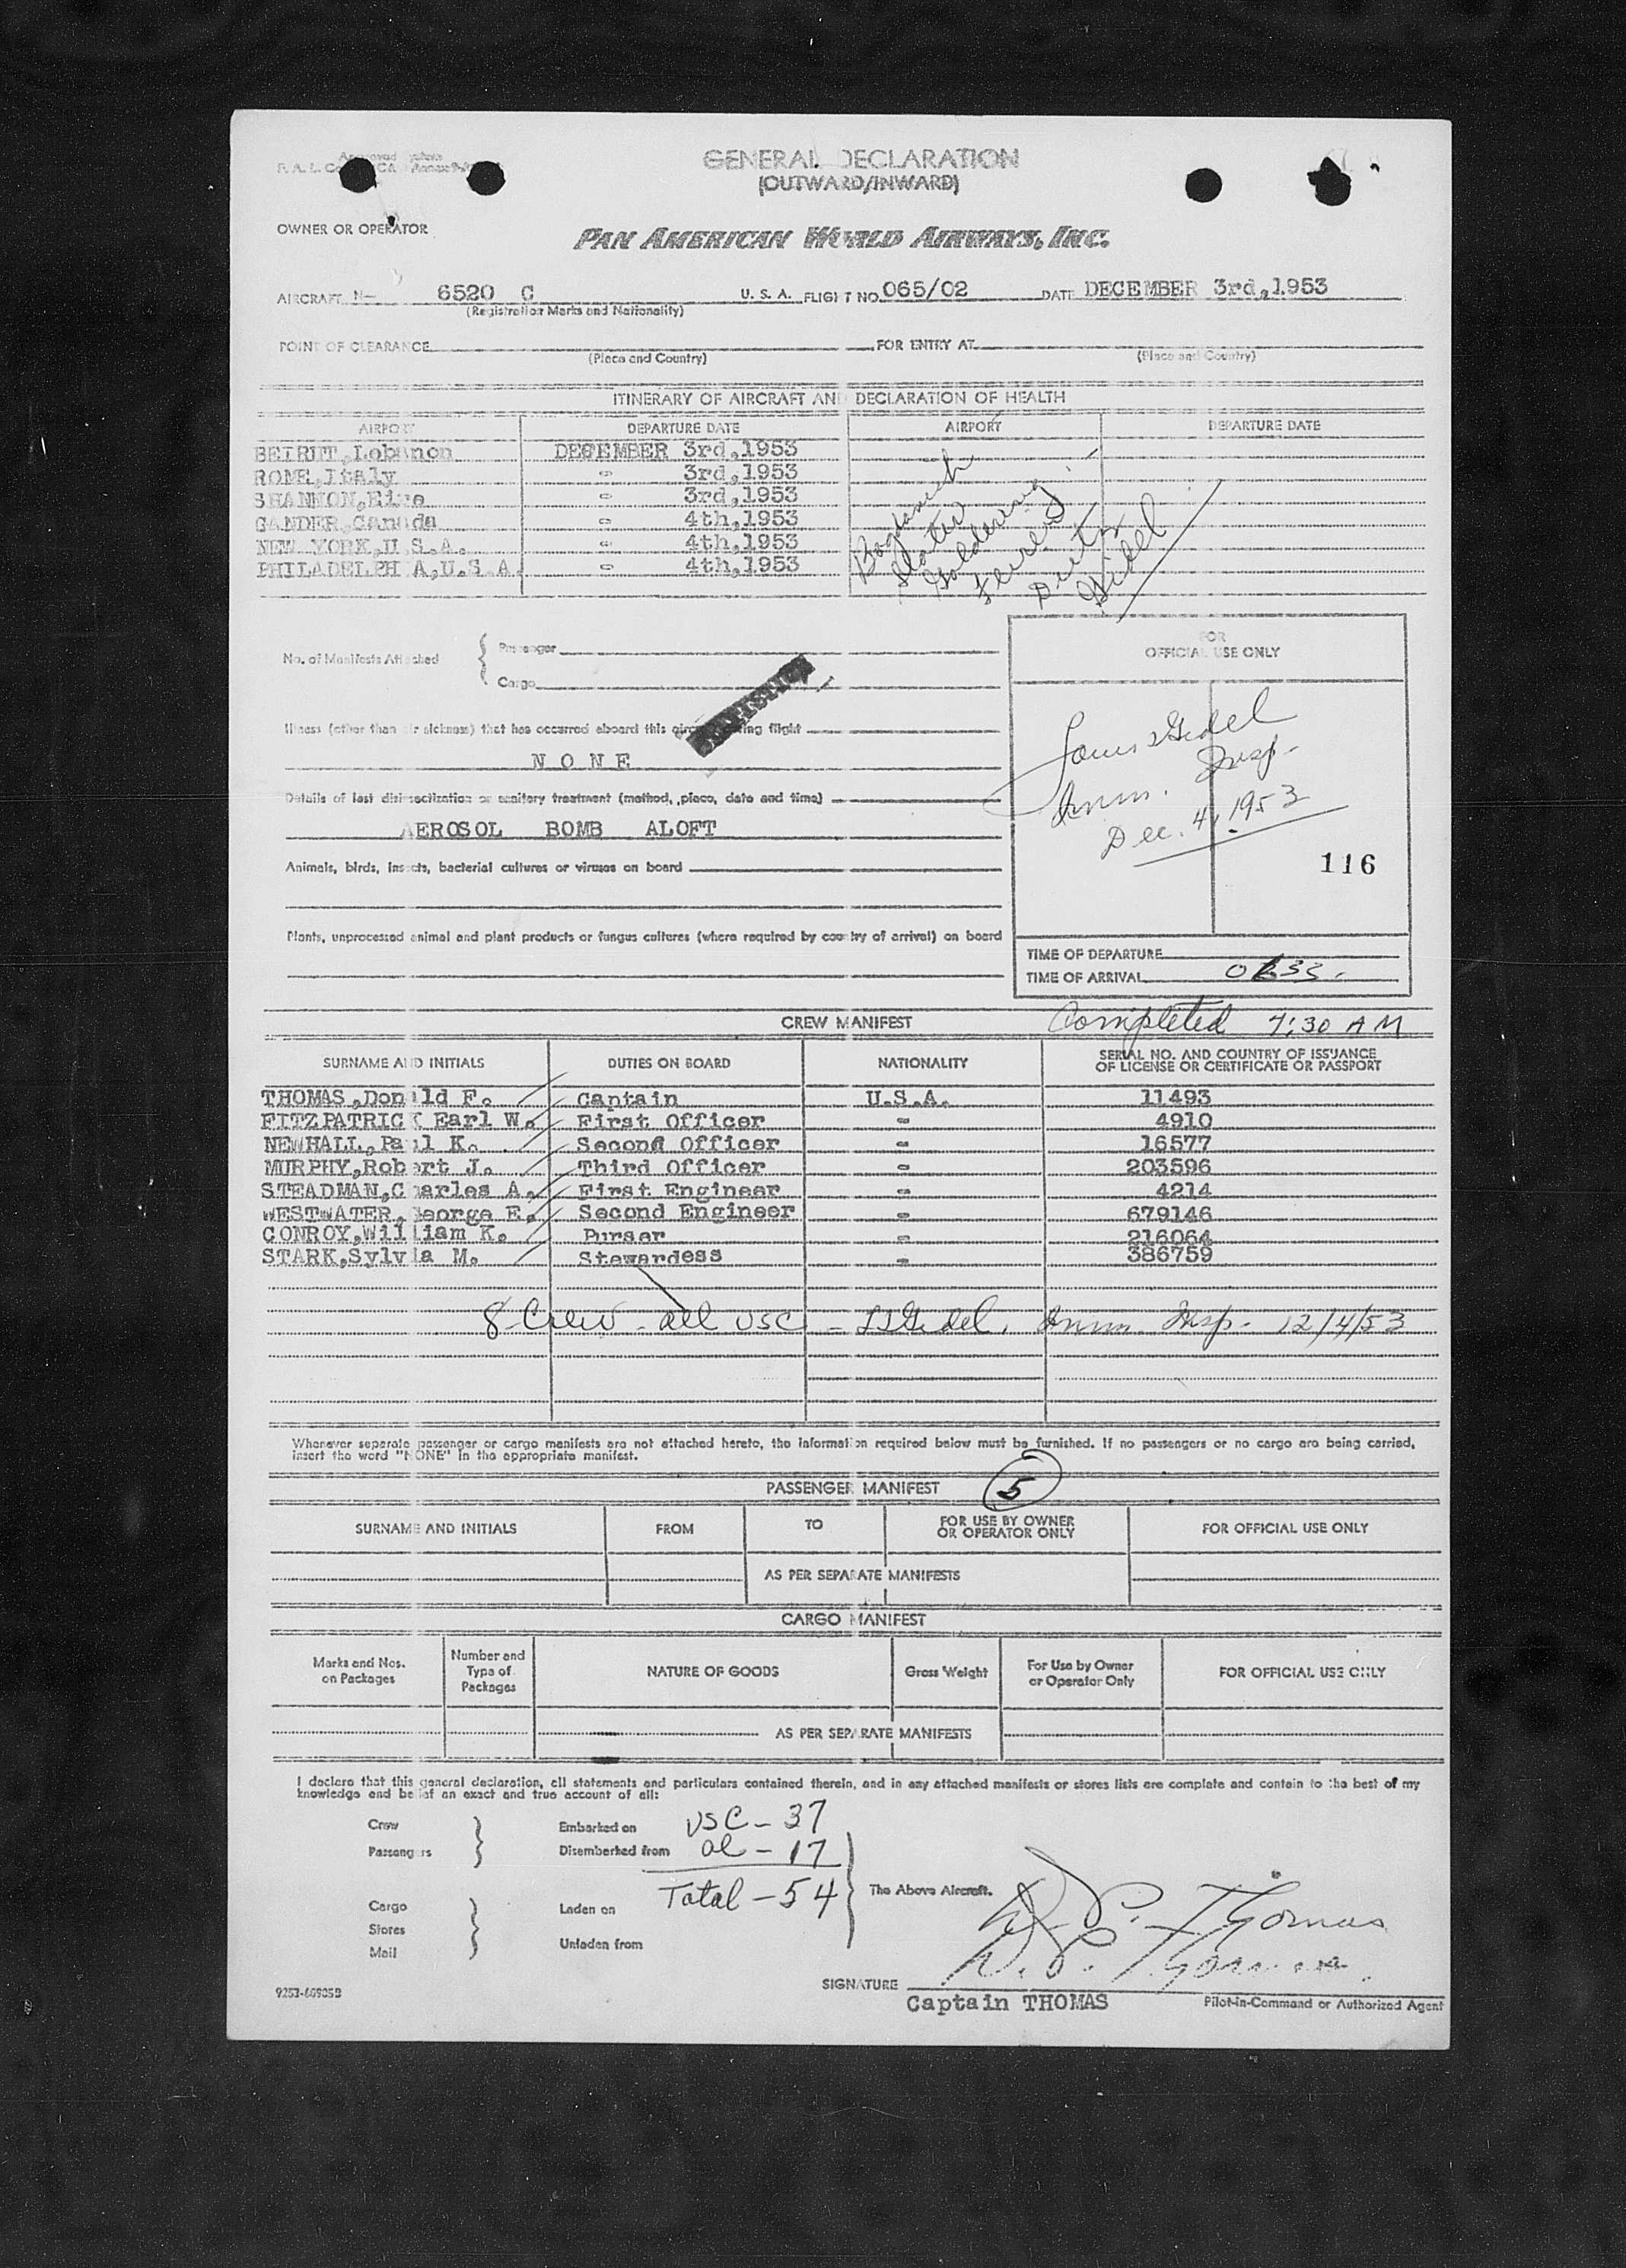 GENERAL DECLARATION
(OUTWARD/INWARD)
OWNER OR OPERATOR
PAN AMERICAN WORLD AIRWAYS, INC.
AIRCRAFT N- 6520 C U. S. A. FLIGHT NO. 065/02 DATE DECEMBER 3rd,1953
(Registration Marks and Nationality)
POINT OF CLEARANCE FOR ENTRY AT
(Place and Country) (Place and Country)
ITINERARY OF AIRCRAFT AND DECLARATION OF HEALTH
AIRPORT DEPARTURE DATE AIRPORT DEPARTURE DATE
BEIRUT,Lebanon DECEMBER 3rd,1953
ROME,Italy - 3rd,1953
SHANNON,Eire - 3rd,1953
GANDER,Canada - 4th,1953
NEW YORK,U.S.A. - 4th,1953
PHILADELPHIA,U.S.A. - 4th,1953
Slater
Gidel
No. of Manifests Attached
Passenger
Cargo
FOR
OFFICIAL USE ONLY
Illness (other than air sickness) that has occurred aboard this aircraft during flight
NONE
Details of last disinsectization or sanitary treatment (method, place, date and time)
AEROSOL BOMB ALOFT
Animals, birds, insects, bacterial cultures or viruses on board
Plants, unprocessed animal and plant products or fungus cultures (where required by country of arrival) on board
Louis Gidel
Imm. Insp.
Dec. 4, 1953
116
TIME OF DEPARTURE
TIME OF ARRIVAL
CREW MANIFEST Completed 7:30 AM
SURNAME AND INITIALS DUTIES ON BOARD NATIONALITY SERIAL NO. AND COUNTRY OF ISSUANCE
OF LICENSE OR CERTIFICATE OR PASSPORT
THOMAS,Donald F. Captain U.S.A. 11493
FITZPATRICK Earl W. First Officer - 4910
NEWHALL,Paul K. Second Officer - 16577
MURPHY,Robert J. Third Officer - 203596
STEADMAN,Charles A. First Engineer - 4214
WESTWATER,George E. Second Engineer - 679146
CONROY,William K. Purser - 216064
STARK,Sylvia M. Stewardess - 386759
8 Crew - all USC - LGidel, Imm. Insp. 12/4/53
Whenever separate passenger or cargo manifests are not attached hereto, the information required below must be furnished. If no passengers or no cargo are being carried,
insert the word "NONE" in the appropriate manifest.
PASSENGER MANIFEST 5
SURNAME AND INITIALS FROM TO FOR USE BY OWNER
OR OPERATOR ONLY FOR OFFICIAL USE ONLY
AS PER SEPARATE MANIFESTS
CARGO MANIFEST
Marks and Nos.
on Packages
Number and
Type of
Packages
NATURE OF GOODS Gross Weight
For Use by Owner
or Operator Only
FOR OFFICIAL USE ONLY
AS PER SEPARATE MANIFESTS
I declare that this general declaration, all statements and particulars contained therein, and in any attached manifests or stores lists are complete and contain to the best of my
knowledge and belief an exact and true account of all:
Crew Embarked on USC - 37
Passengers Disembarked from al - 17
Total - 54
The Above Aircraft.
Cargo Laden on
Stores
Mail Unladen from
Thomas
SIGNATURE
Captain THOMAS
Pilot-in-Command or Authorized Agent